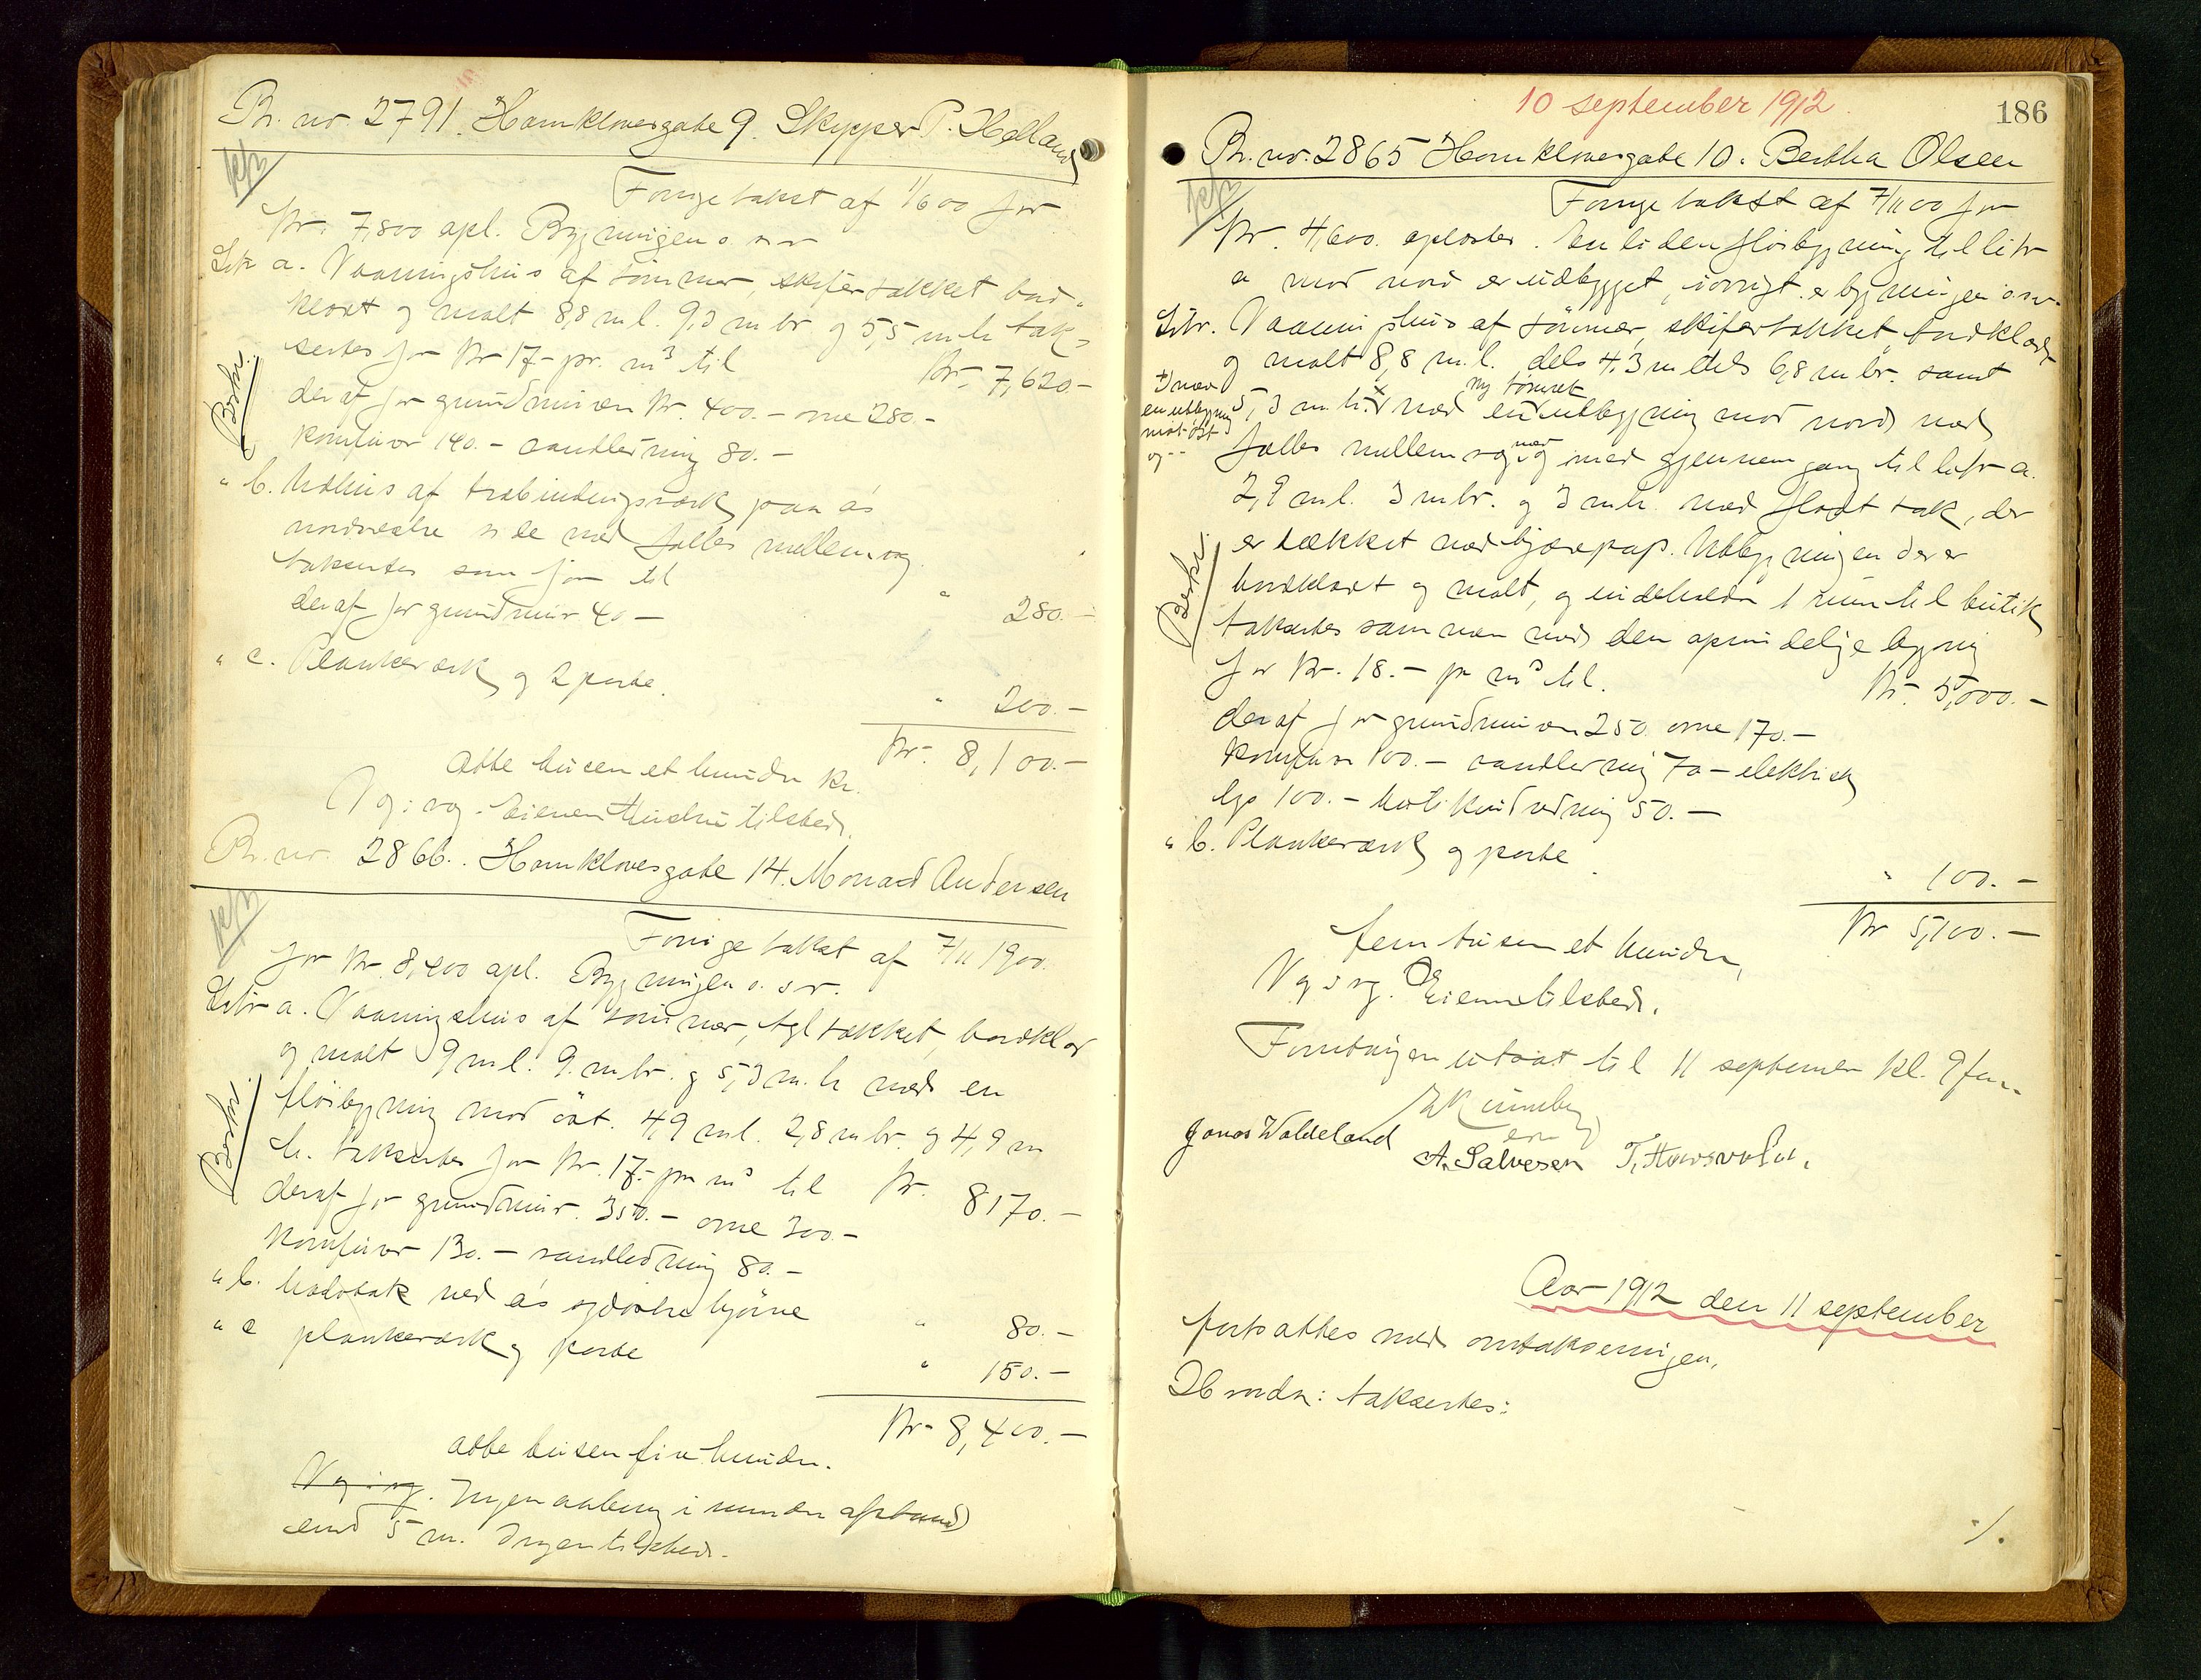 Br. nr. 2791. Homklovesgade 9. Skypper P. Helland
Forrige takst af 1/6 00 for
Kr. 7,800 opl. Bygningen o. s. v
Litr a. Vaaningshus af tømmer, skifertækket bord-
klædt og malt 8,8 m l. 9,3 m br. og 5,5 m h tak-
sertes for Kr 17- pr. m³ til Kr. 7,620.-
deraf for grundmuren Kr. 400.- ovne 280.-
Komfurer 140.- vandledning 80.-
Beskr.
" b. Udhus af træbindingsværk paa a's
nordvestre side med fælles mellemvæg
taksertes som før til " 280.-
deraf for grundmur 40 -
" c. Plankeværk og 2 porte. " 200.-
Kr. 8,100.-
Otte tusen et hundre kr.
V. g. i. vg. Eieren tilstede.
Br. nr. 2866. Homklovesgade 14. Monrad Andersen
Forrige takst af 7/11 1900.
for Kr. 8,400 opl. Bygningen o. s. v.
Litr a. Vaaningshus af tømmer, tegltækket, bordklæd
og malt 9 m l. 9. m br. og 5,3 m. h med en
fløibygning mod øst. 4,9 m l. 2,8 m br. og 4,9 m
h. taksertes for Kr. 17.- pr m³ til Kr. 8170.-
deraf for grundmur. 350.- ovne 300.-
Komfurer 130.- vandledning 80.-
Beskr.
" b. Vedskak ved a's sydøstre hjørne " 80.-
" c plankeværk og porte " 150.-
Kr. 8,400.-
otte tusen fire hundre.
V g. i. vg. Ingen anbring i mindre afstand
end 5 m. Ingen tilstede.
10 september 1912.
186
Br. nr. 2865 Homklovesgade 10. Bertha Olsen
Forrige takst af 7/11 00 for
Kr. 4,600. oplæstes. En liden fløibygning til litr
a mod nord er udbygget, iøvrigt er bygningen o s v.
Litr. Vaaningshus af tømmer, skifertækket, bordklædt
og malt 8,8 m. l. dels 4,3 m dels 6,8 m br. samt
5,3 m h. med en ny tømret utbygning mod nord med
med en utbygning mot øst og
fælles mellemvæg og med gjennemgang til litr a.
2,9 m l. 3 m br. og 3 m h. med fladt tak, der
er tækket med tjærepap. Utbygningen der er
bordklædt og malt, og indeholder 1 rum til butik
taksertes sammen med den oprindelige bygning
for Kr. 18.- pr m³ til. Kr. 5,000.-
Beskr.
deraf for grundmuren 250. ovne 170.-
Komfurer 100.- vandledning 70 - elektrisk
lys 100.- butikindredning 50.-
" b. Plankeværk og porte " 100.-
Kr 5,100.-
fem tusen et hundre,
V g i vg. Eieren tilstede.
Forretningen utsat til 11 september kl. 9 fm.
Jonas Waldeland A. Salvesen
Aar 1912 den 11 september
fortsattes med omtakseringen.
taksertes:
./.